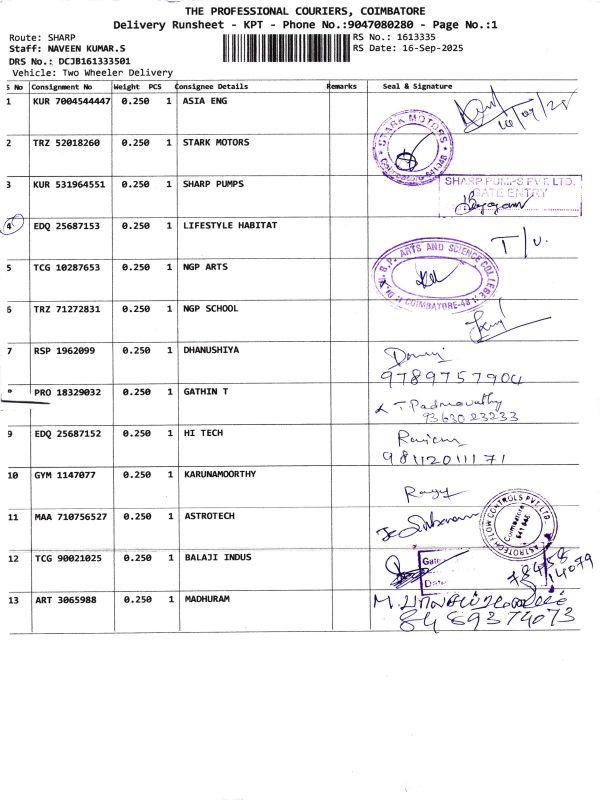 THE PROFESSIONAL COURIERS, COIMBATORE
Delivery Runsheet - KPT - Phone No.:9047080280 - Page No.:1
Route: SHARP
RS No.: 1613335
Staff: NAVEEN KUMAR.S
RS Date: 16-Sep-2025
DRS No.: DCJB161333501
Vehicle: Two Wheeler Delivery
S No Consignment No Weight PCS Consignee Details Remarks Seal & Signature
1 KUR 7004544447 0.250 1 ASIA ENG
2 TRZ 52018260 0.250 1 STARK MOTORS
STARK MOTORS
3 KUR 531964551 0.250 1 SHARP PUMPS
SHARP PUMPS PVT. LTD.
GATE ENTRY
4 EDQ 25687153 0.250 1 LIFESTYLE HABITAT
5 TCG 10287653 0.250 1 NGP ARTS
ARTS AND SCIENCE COLLEGE
COIMBATORE-48
6 TRZ 71272831 0.250 1 NGP SCHOOL
7 RSP 1962099 0.250 1 DHANUSHIYA
9789757904
PRO 18329032 0.250 1 GATHIN T
T Padmavathy
93630 23233
9 EDQ 25687152 0.250 1 HI TECH
98112011171
10 GYM 1147077 0.250 1 KARUNAMOORTHY
11 MAA 710756527 0.250 1 ASTROTECH
ASTROTECH FLOW CONTROLS PVT. LTD
Coimbatore
641 048
12 TCG 90021025 0.250 1 BALAJI INDUS
Gate
Date
78458
14079
13 ART 3065988 0.250 1 MADHURAM
84893 74073